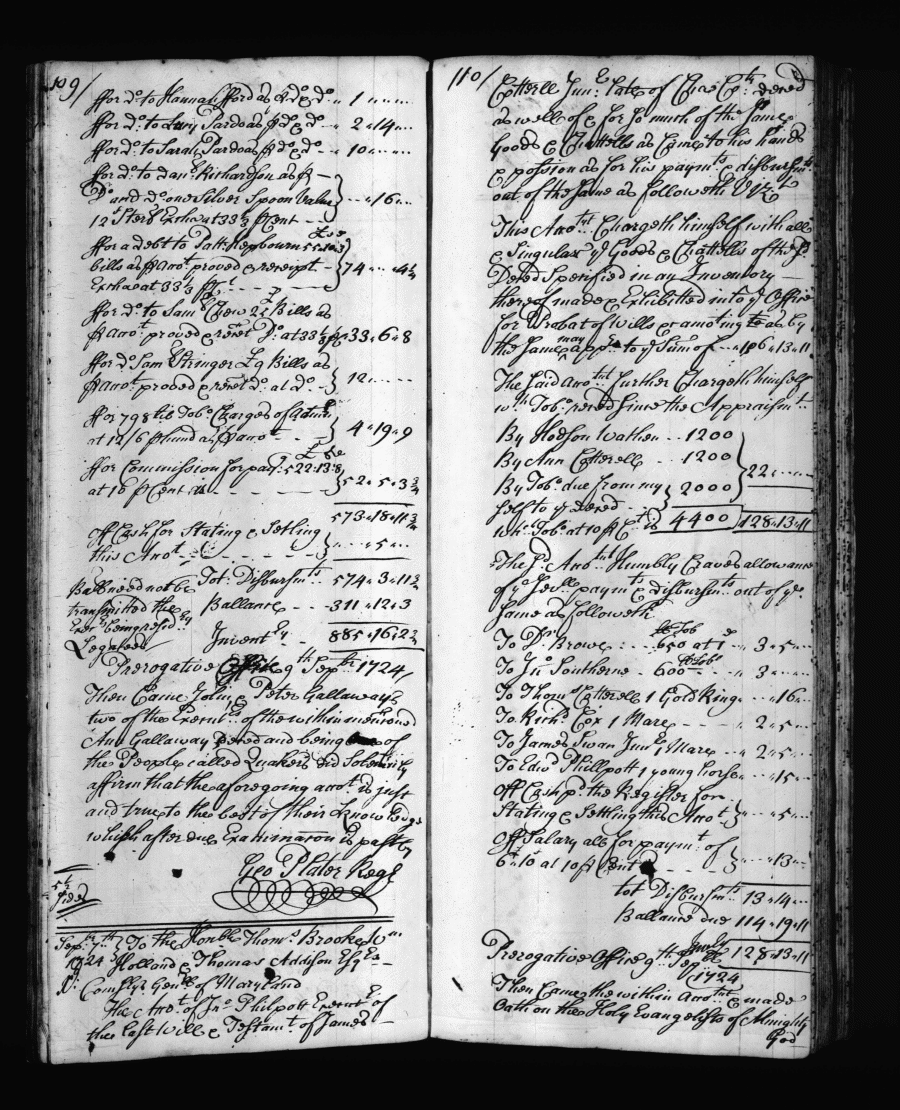 109/
ffor do to Hannah fford as pr do & do " 1 " " "
ffor do: to Lucy Pardo as pr do & do " 2 " 14 "
ffor do: to Sarah Pardo as pr do & do - " 10 " " "
ffor do: to Danl: Richardson as pr —
Do and do: one Silver Spoon Value } - - " 16 "
12s Sterl Excha at 33⅓ pr Cent - -
ffor a debt to Patk Hepbourn
bills as pr Accot: proved & receipt - } 74 " - " 4½
Excha at 33⅓ pr Ct - - - -
ffor do: to Saml: Chew Bills as
pr Accot: proved & recet Do: at 33⅓ pr 33 " 6 " 8
ffor do Saml Stringer Bills as
pr Accot: proved & recet do: at do - } 12 " - - -
ffor 798 lb Tobo: Charges of Admn
at 12/6 pr hund as pr Accot - - } 4 " 19 " 9
ffor Commission for pay: 522:13:8
at 10 pr Cent is - - - - } 52 " 5 " 3¾
573 " 18 " 11¾
Off Cash for Stating & Setling
this Accot - - - - } " " 5 " "
Ball need not be Tot: Disbursmts - 574 " 3 " 11¾
transmitted the Ballance - - - 311 " 12 " 3
Exrs: being resid:ry
Legatees Invent:ry - 885 " 16 " 2¾
Prerogative Office 9th Septbr 1724
Then Came John & Peter Gallaway
two of the Execut:rs of the within menconed
Ann Gallaway Deced and being of
the People called Quakers did Solemnly
affirm that the aforegoing accot: is just
and true to the best of their Knowledge
which after due Examinacon is past by
Geo Plater Regr
Sepbr 7th } To the Honble Thoms Brooke Wm
1724 } Holland & Thomas Addison Esqrs —
Comssrs Genll of Maryland
The Accot of Jno: Philpott Execut:r of
the Last Will & Testamt of James —
110/
Cotterell Junr: late of Chas Coty: deced
as well of & for so much of the Same
Goods & Chattells as Came to his hands
& possion as for his paymts & disbursmts
out of the Same as followeth Vizt
This Accotnt Chargeth himself with all
& Singular ye Goods & Chattells of the sd
Deced Specified in an Inventory —
thereof made & Exhibitted into ye Office
for Probat of Wills & amoting to as by
the Same may appr to ye Sum of - 106 " 13 " 11
The Said Accotnt further Chargeth himself
wth Tobo: reced Since the Appraismt
By Hodson Wathen - - 1200
By Ann Cotterell - - 1200
By Tobo: due from my } 2000 } 22 " - - -
Self to ye Deced
wch Tobo: at 10 pr Ct is 4400 128 " 13 " 11
The sd: Accotnt Humbly Craves allowance
of ye Sevll paymts & disbursmts out of ye
Same as followeth
To Dr: Browe - - 650 at 1d " 3 " 5 " -
To Jno Southerne - 600 " 3 " - - -
To Thoms Cotterell 1 Gold Ring - " 16 -
To Richd Cox 1 Mare - - - " 2 " 5 " -
To James Swan Junr 1 Mare - - " 2 " 5 " -
To Edwd Phillpott 1 young horse - - " 15 -
Off Cash pd: the Register for
Stating & Settling this Accot } " - " 5 " -
Off Salary als for paymt of } - " 13 -
& to at 10 pr Cent
tot Disbursmts 13 " 14 -
Ballance due 114 " 19 " 11
Invty 128 " 13 " 11
Prerogative Office 9th Septbr
1724
Then Came the within Accotnt & made
Oath on the Holy Evangelists of Almighty
God